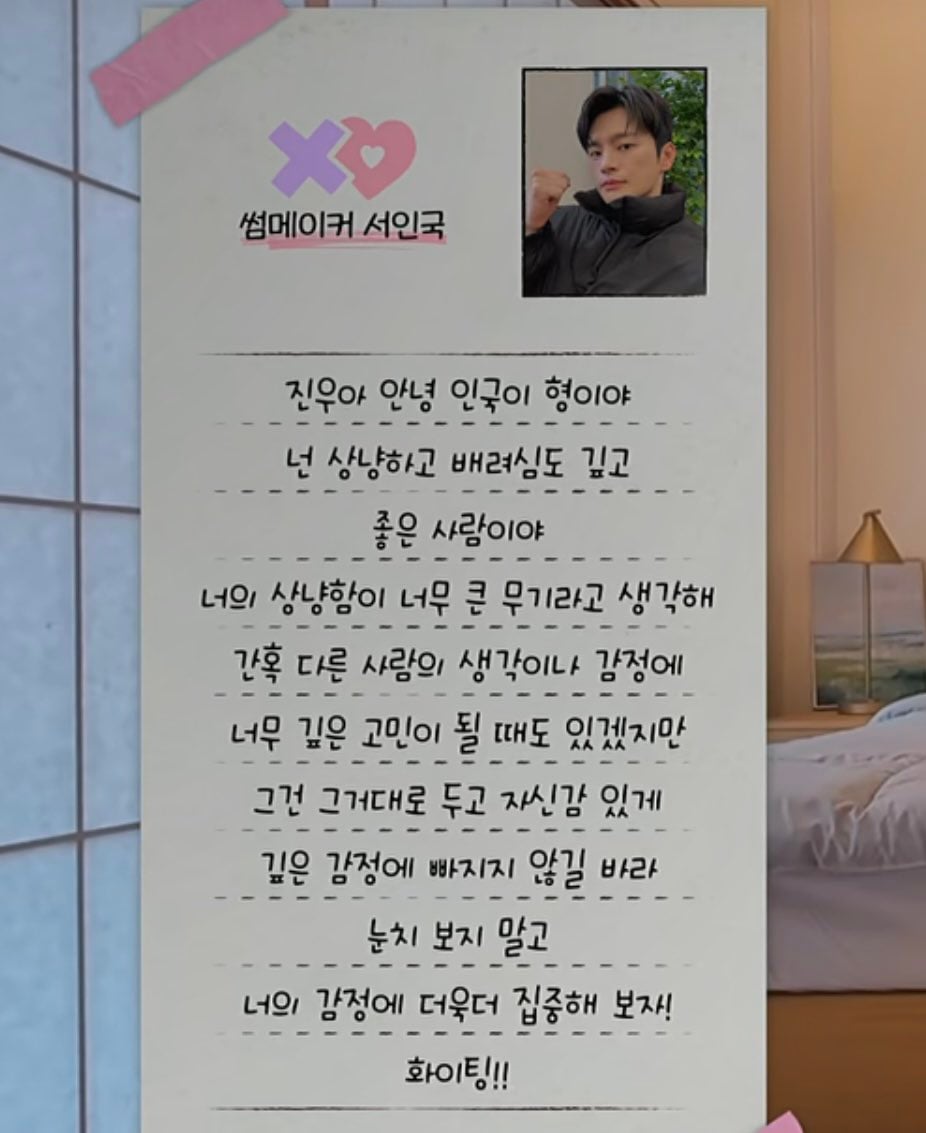 썸메이커 서인국
진우아 안녕 인국이 형이야
넌 상냥하고 배려심도 깊고
좋은 사람이야
너의 상냥함이 너무 큰 무기라고 생각해
간혹 다른 사람의 생각이나 감정에
너무 깊은 고민이 될 때도 있겠지만
그건 그거대로 두고 자신감 있게
깊은 감정에 빠지지 않길 바라
눈치 보지 말고
너의 감정에 더욱더 집중해 보자!
화이팅!!